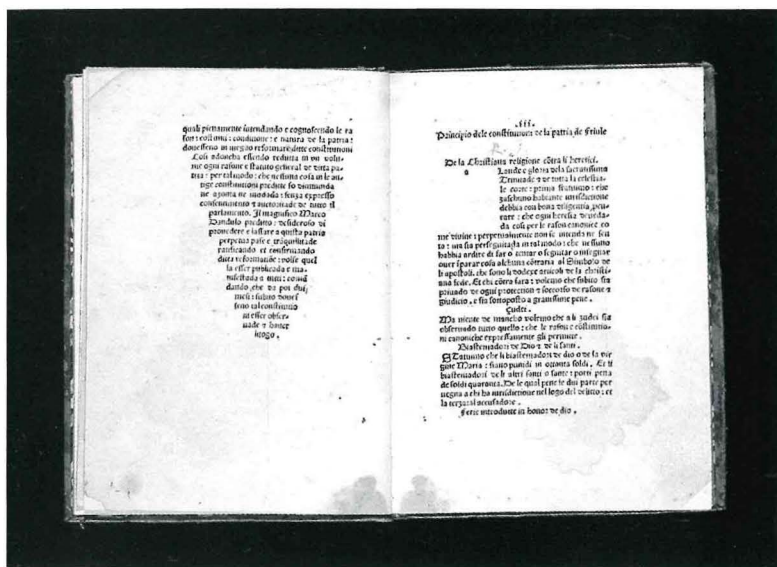 quali pienamente intendando e cognoscendo le ra
son: costumi: condictione: e natura de la patria:
dovesseno in meglio reformar ditte constitutioni
Cosi adoncha essendo redutta in un volu-
me ogni rasone e statuto general de ditta pa-
tria: per tal modo: che nessuna cosa in le an-
tige constitutioni predite so diminuida
ne azonta ne modada: senza expresso
consentimento τ auctoritade de tutto il
parlamento. Il magnifico Marco
Dandulo preditto: desideroso di
provedere e lassare a questa patria
perpetua pase e trãquilitade
ratificando et confirmando
ditta reformatiõe: volse quel
la esser publicada e ma-
nifestada a tutti: comã
dando, che da poi dui
mesi: subito doves
seno tal constitutio
ni esser obser-
vade τ haver
luogo.
.III.
Principio dele constitutiõi de la patria de Friule
De la Christiana religione cõtra li heretici.
a Laude e gloria dela sacratissima
Trinitade τ de tutta la celestia-
le corte: prima statuimo: che
zaschuno habiante iurisdictione
debbia con bona diligentia, pcu,
rare: che ogni heresia sia veda-
da cosi per le rason canonice co
me divine: perpetualmente non se intenda ne sen
ta: ma sia perseguitada in tal modo: che nessuno
habbia ardire di far o tentar o seguitar o insegnar
over sparar cosa alchuna cõtraria al Simbolo de
li apostoli. che sono li dodese articoli de la christi-
ana fede. Et chi cõtra fara: volemo che subito sia
privado de ogni protection τ soccorso de rasone τ
giudicio. e sia sottoposto a gravissime pene.
Zudei.
Ma niente de mancho volemo che a li zudei sia
observado tutto quello: che le rason e cõstitutio-
ni canoniche expressamente gli permitte.
Biastemadori de Dio τ de li santi.
STatuimo che li biastemadori de dio o de la ver
gine Maria: siano punidi in ottanta soldi. Et li
biastemadori de li altri santi o sante: porti pena
de soldi quaranta. De le qual pene le dui parte per
vegna a chi ha iurisdictione nel logo del delitto: et
la terza al accusadore.
Ferie introdutte in honor de dio.